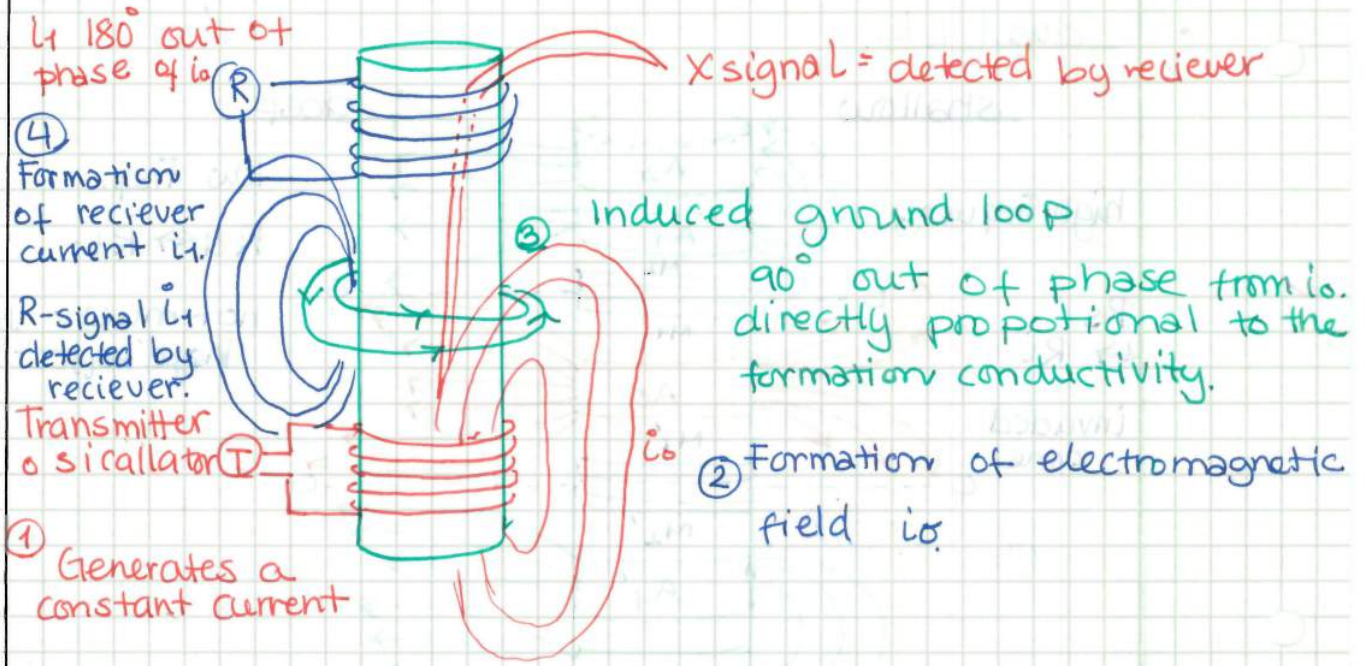 i1 180° out of
phase of io
R
④
Formation
of reciever
current i1.
R-signal i1
detected by
reciever.
Transmitter
osicallator T
①
Generates a
constant current
X signal = detected by reciever
③ Induced ground loop
90° out of phase from io.
directly propotional to the
formation conductivity.
io
② Formation of electromagnetic
field io.